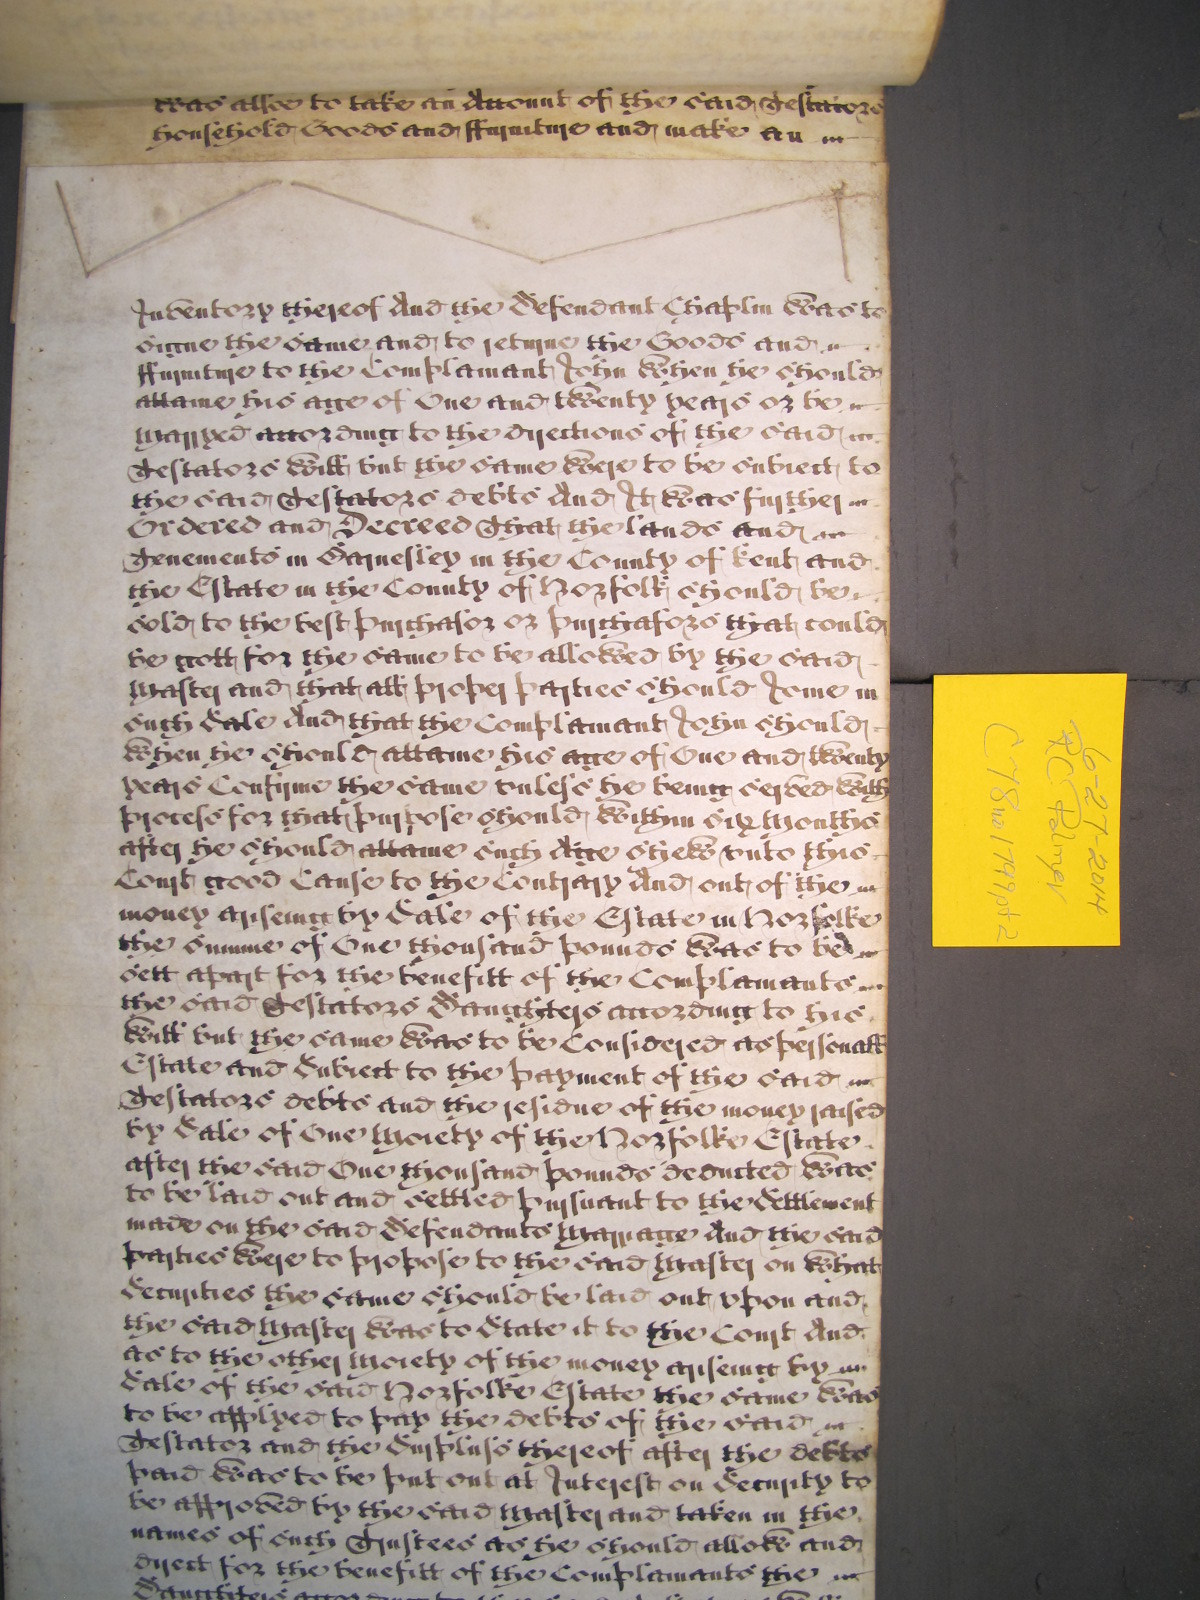 was alsoe to take an Account of the said Testators
household Goods and ffurniture and make an
Inventory thereof And the Defendant Chaplin was to
signe the same and to returne the Goods and
ffurniture to the Complainant John when he should
attaine his age of One and twenty years or be
Marryed according to the directions of the said
Testators Will but the same were to be subiect to
the said Testators debts And It was further
Ordered and Decreed That the lands and
Tenements in in the County of Kent and
the Estate in the County of Norfolk should be
sold to the best purchasor or purchasors that could
be gott for the same to be allowed by the said
Master and that all proper parties should Joine in
such Sale And that the Complainant John should
when he should attaine his age of One and twenty
years Confirme the same unless he being served with
process for that purpose should within six Months
after he should attaine such Age shew unto this
Court good Cause to the Contrary And out of the
money ariseing by Sale of the Estate in Norfolke
the summe of One thousand pounds was to be
sett apart for the benefitt of the Complainants
the said Testators Daughters according to his
Will but the same was to be Considered as personall
Estate and Subiect to the payment of the said
Testators debts and the residue of the money raised
by Sale of One Moiety of the Norfolke Estate
after the said One thousand pounds deducted was
to be laid out and settled pursuant to the Settlement
made on the said Defendants Marriage And the said
parties were to propose to the said Master on what
Securities the same should be laid out upon and
the said Master was to State it to the Court And
as to the other Moiety of the money ariseing by
Sale of the said Norfolke Estate the same was
to be applyed to pay the debts of the said
Testator and the Surpluss thereof after the debts
paid was to be put out at Interest on Security to
be approved by the said Master and taken in the
names of such Trustees as he should allow and
direct for the benefitt of the Complainants the
Daughters according to
6-27-2014
RC Palmer
C78no1799pt2